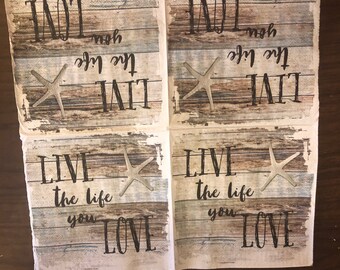 LIVE
the life
you
LOVE
LIVE
the life
you
LOVE
LIVE
the life
you
LOVE
LIVE
the life
you
LOVE